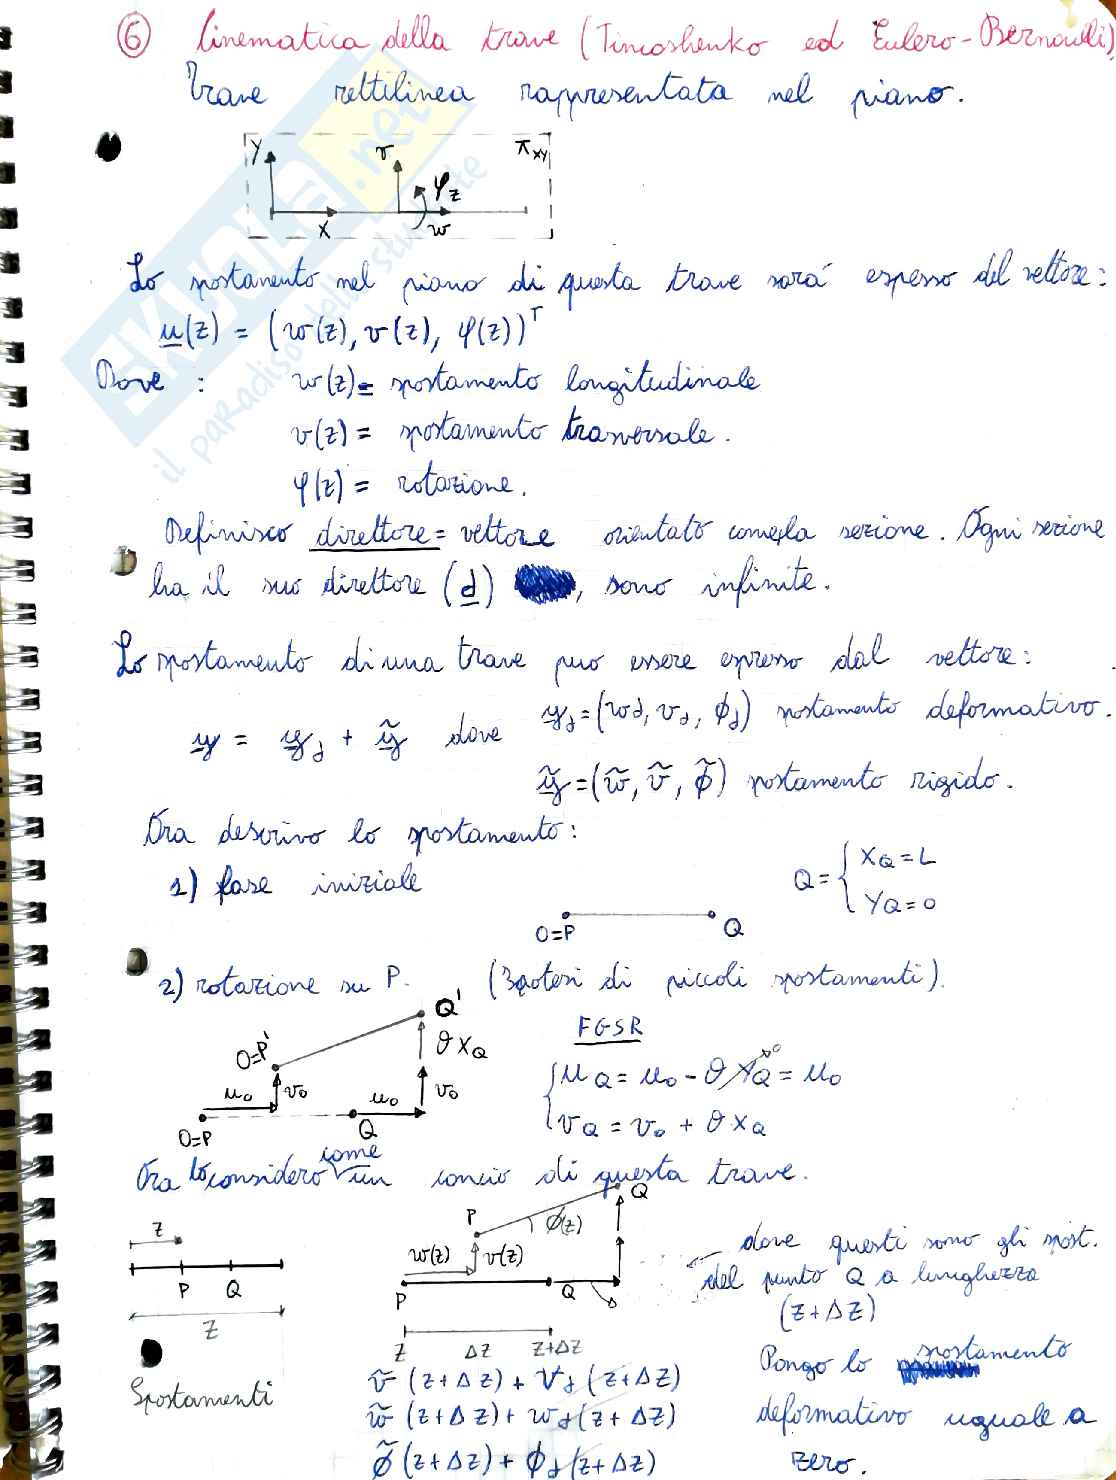 6 Cinematica della trave (Timoshenko ed Eulero-Bernoulli)
Trave rettilinea rappresentata nel piano.
Y v φz πxy
X w
SKUOLA.net
il paradiso dello studente
Lo spostamento nel piano di questa trave sará espesso dal vettore:
u(z) = (w(z), v(z), φ(z))ᵀ
Dove : w(z) = spostamento longitudinale
v(z) = spostamento trasversale.
φ(z) = rotazione.
Definisco direttore = vettore orientato come la sezione. Ogni sezione
ha il suo direttore (d) , sono infinite.
Lo spostamento di una trave può essere espresso dal vettore:
u = u_d + ũ dove u_d = (w_d, v_d, ϕ_d) spostamento deformativo.
ũ = (w̃, ṽ, ϕ̃) spostamento rigido.
Ora descrivo lo spostamento:
1) fase iniziale
Q = { X_Q = L
Y_Q = 0
O≡P Q
2) rotazione su P. (Ipotesi di piccoli spostamenti).
Q'
O≡P' ϑ X_Q
u₀ v₀ u₀ v₀
O≡P Q
FGSR
{ u_Q = u₀ - ϑ Y_Q →0 = u₀
v_Q = v₀ + ϑ X_Q
Ora lo considero come un concio di questa trave.
z P Q z
P ϕ(z) Q
w(z) v(z)
P Q
z Δz z+Δz
dove questi sono gli spost.
del punto Q a lunghezza
(z+Δz)
Spostamenti
ṽ (z+Δz) + v_d (z+Δz)
w̃ (z+Δz) + w_d (z+Δz)
ϕ̃ (z+Δz) + ϕ_d (z+Δz)
Pongo lo spostamento
deformativo uguale a
zero.